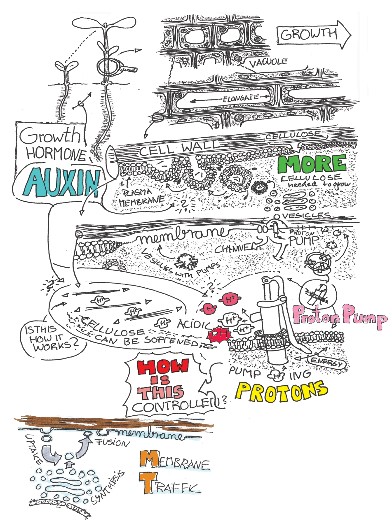 GROWTH
VACUOLE
ELONGATE
Growth
HORMONE
AUXIN
CELL WALL
CELLULOSE
MORE
CELLULOSE
needed to grow
PLASMA
MEMBRANE
?
VESICLES
membrane
PROTON
PUMP
CHANNELS
VESICLES WITH PUMPS
H+
H+
H+
H+
H+
ACIDIC
CELLULOSE
CAN BE SOFTENED
IS THIS
HOW IT
WORKS?
Proton Pump
ENERGY
PUMP ING
PROTONS
HOW
IS
THIS
CONTROLLED?
membrane
FUSION
UPTAKE
SYNTHESIS
MEMBRANE
TRAFFIC